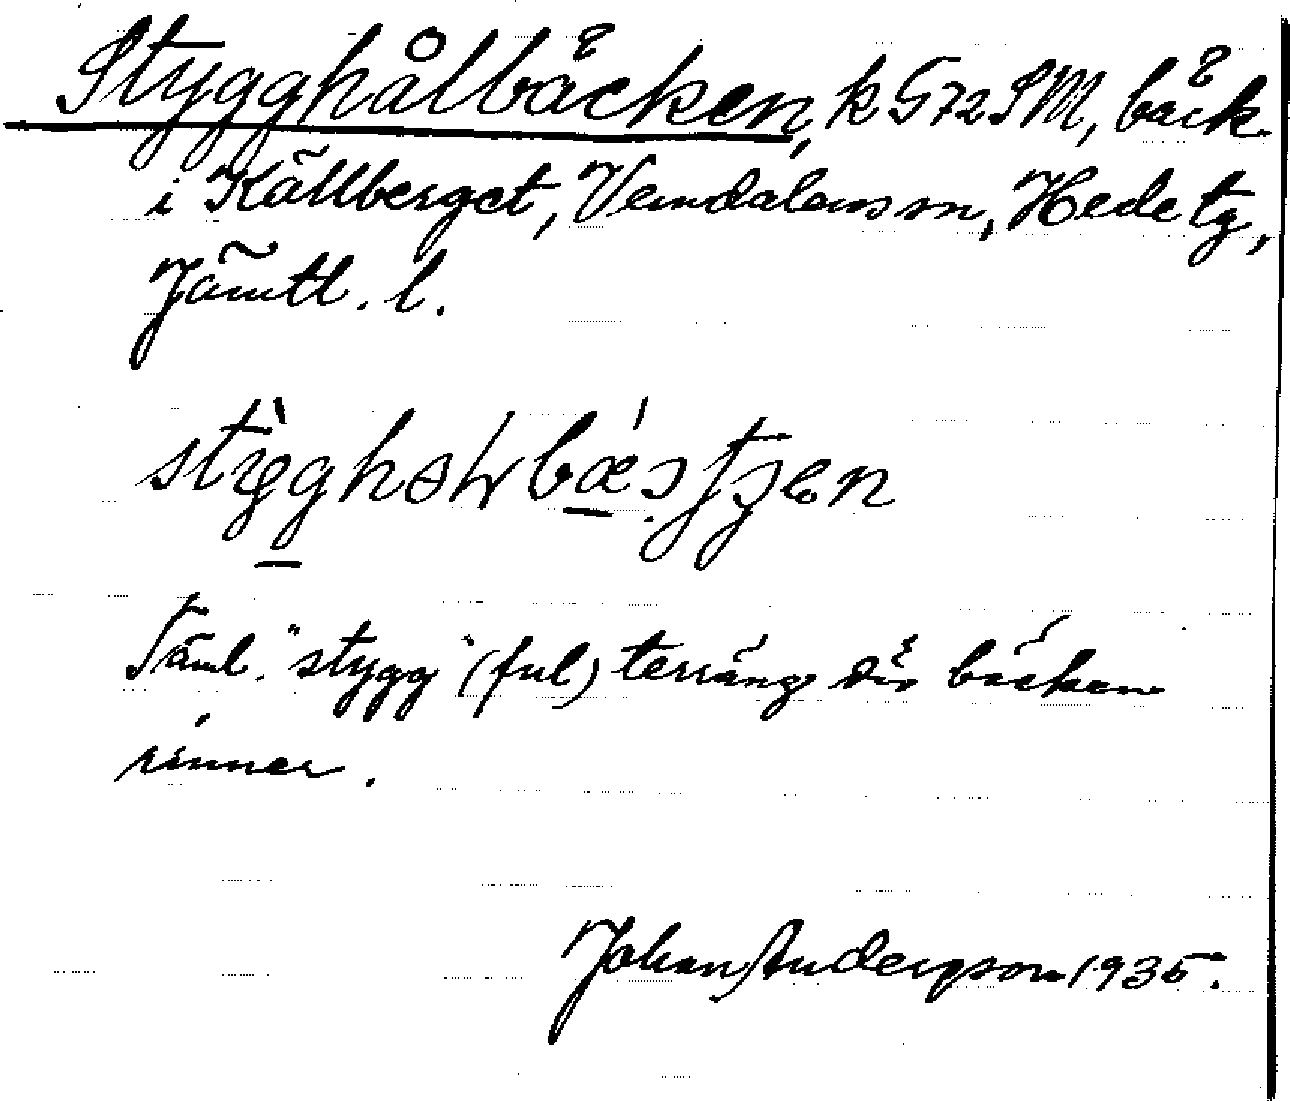 Stygghålbäcken, k G72SM, bäck
i Källberget, Vemdalens sn, Hede tg,
Jämtl. l.
Saml. "stygg" (ful) terräng där bäcken
rinner.
Johan Anderzson 1935.